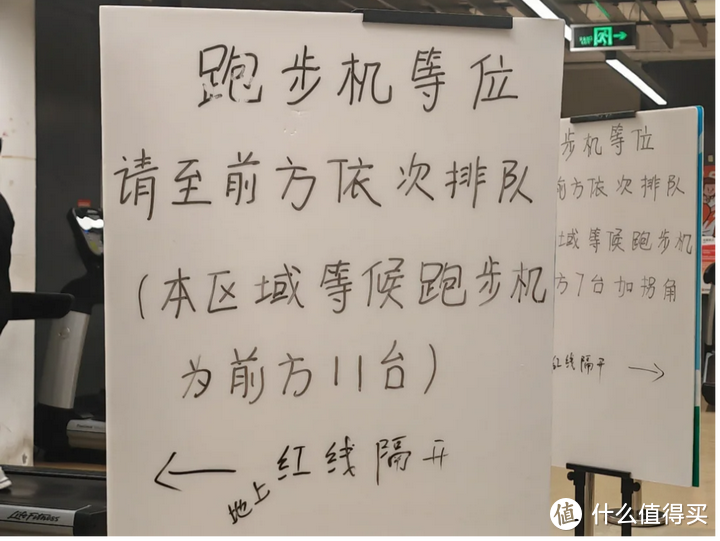 跑步机等位
请至前方依次排队
(本区域等候跑步机
为前方11台)
← 地上红线隔开
步机等位
前方依次排队
域等候跑步机
方7台加拐角
红线隔开 →
LifeFitness
值 什么值得买